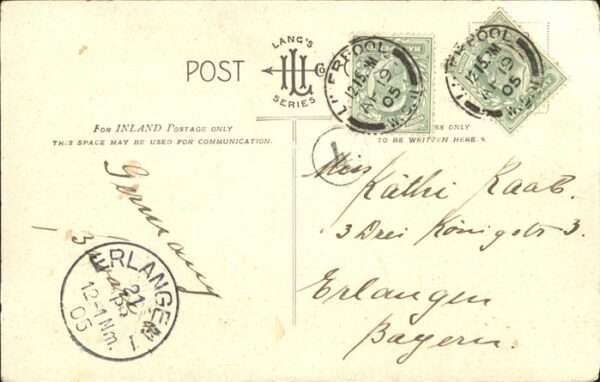 POST
LANG'S
SERIES
L'VERPOOL
12.15 PM
AP 19
05
L'VERPOOL
12.15 PM
AP 19
05
FOR INLAND POSTAGE ONLY
THIS SPACE MAY BE USED FOR COMMUNICATION.
ONLY
TO BE WRITTEN HERE.
T
Miss
Käthi Raab.
3 Drei Königstr 3.
Erlangen
Bayern.
Germany
ERLANGEN
21
12-1 Nm.
05